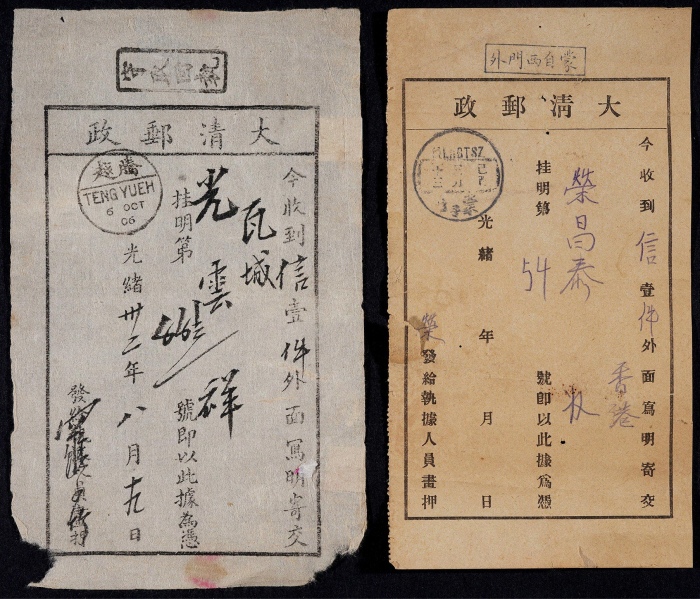 大清郵政
今收到信壹件外面寫明寄交
瓦城
光雲祥
挂明第
號即以此據為憑
騰越
TENG YUEH
6 OCT
06
光緒卅二年八月十九日
發
蒙自西門外
大清郵政
今收到信壹件外面寫明寄交
香港
榮昌泰
挂明第54號即以此據爲憑
MENGTSZ
光緒年月日
發給執據人員畫押